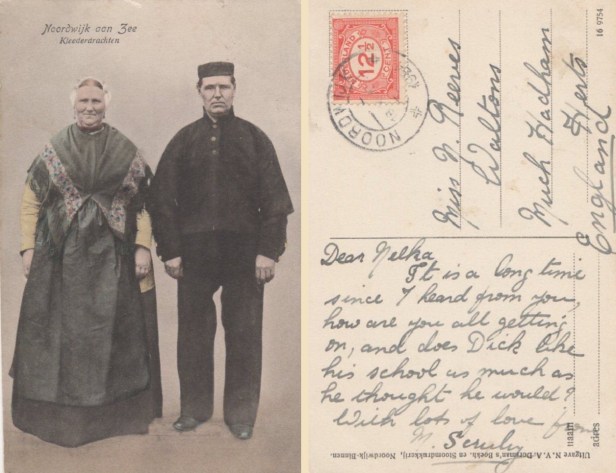 Noordwijk aan Zee
Kleederdrachten
16 9754
NEDERLAND
12½
CENT
NOORDWIJK
Miss N. Reeves
Waltons
Much Hadham
Herts
England
Dear Nelka
It is a long time
since I heard from you,
how are you all getting
on, and does Dick like
his school as much as
he thought he would?
With lots of love from
M. Scruby
naam
adres
Uitgave N.V. A. Boekh. en Stoomdrukkerij, Noordwijk-Binnen.